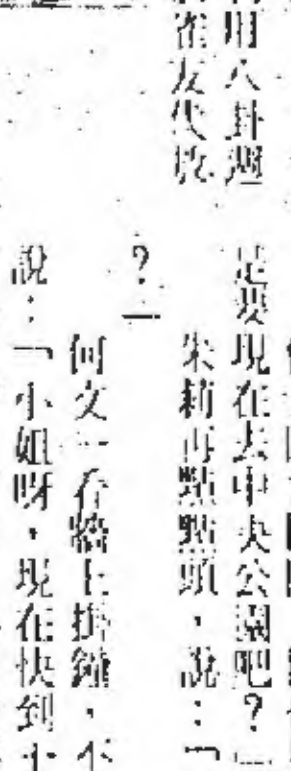 用八卦週
雀友代
是要現在去中央公園吧？
朱莉再點點頭，說：「
？」
何文一看牆上掛鐘，不
說：「小姐呀，現在快到十